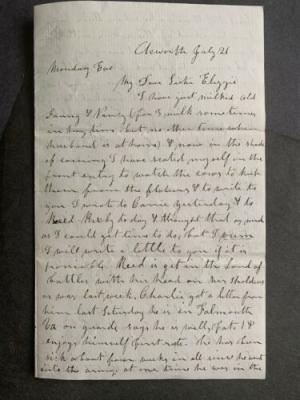 Acworth July 21
Monday Eve
My Dear Sister Lizzie
I have just milked old
Fanny & Nancy (for I milk sometimes
in haying time but no other time when
husband is at home) & now in the shade
of evening I have seated myself in the
front entry to watch the cows to keep
them from the flowers & to write to
you I wrote to Carrie yesterday & to
Reed to day & thought that as much
as I could get time to do, but I
I will write a little to you if it is
Reed is yet in the land of
battles with his head on his sholders
or was last week. Charlie got a letter from
him last Saturday he is in Falmouth
Va on guard, says he is well, fat &
enjoys himself first rate. He has been
sick about four weeks in all since he went
into the army, at one time he was in the